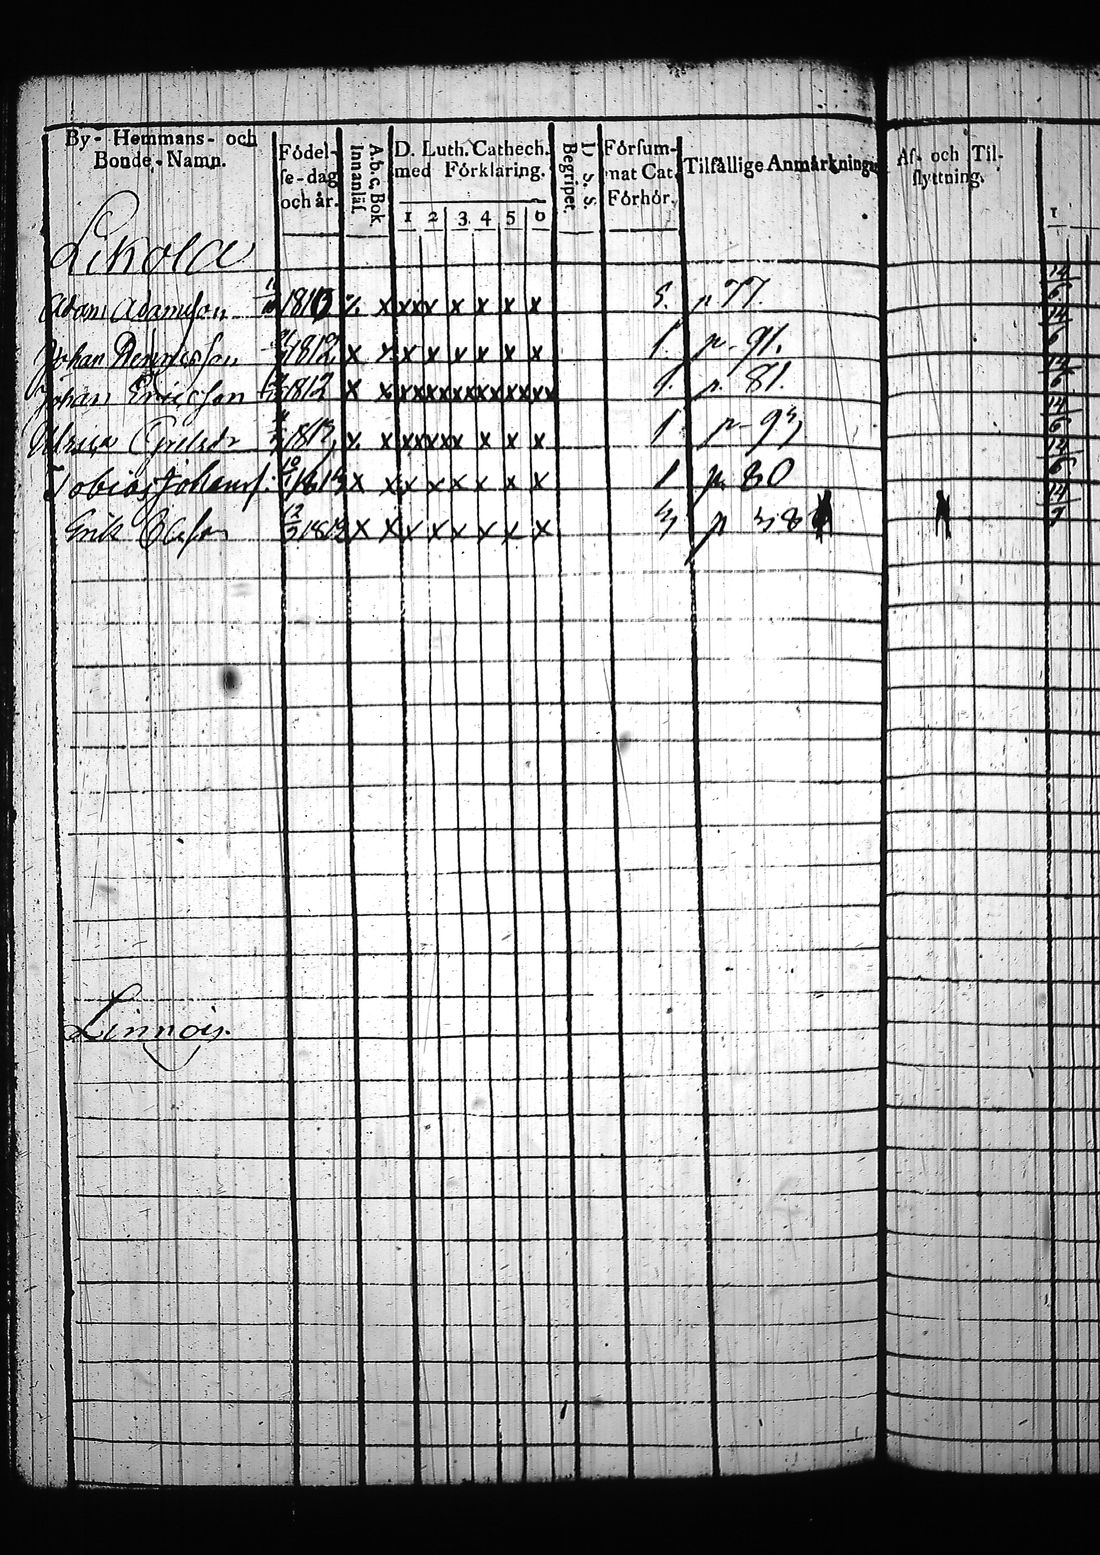 By- Hemmans- och Bonde-Namn.
Födel-se-dag och år.
A.b.c. Bok. Innanläs.
D. Luth. Cathech. med Förklaring.
1 2 3 4 5 6
D. S. S. Begripet.
Försum-nat Cat. Förhör.
Tilfällige Anmärkningar
Af- och Til-flyttning.
1
Likola
Adam Adamsson 1810 x x x x x x x x x 5. p 77.
Johan 1812 x x x x x x x x 1. p. 91.
Johan Ericsson 1812 x x x x x x x x x x x x x 1. p. 81.
Ulrica 1813 x x x x x x x x x x 1 p. 93
Tobias Johanss. x x x x x x x x 1 p. 80
Erik Olofson 12/3 1813 x x x x x x x x 3 p 38
Linnois.